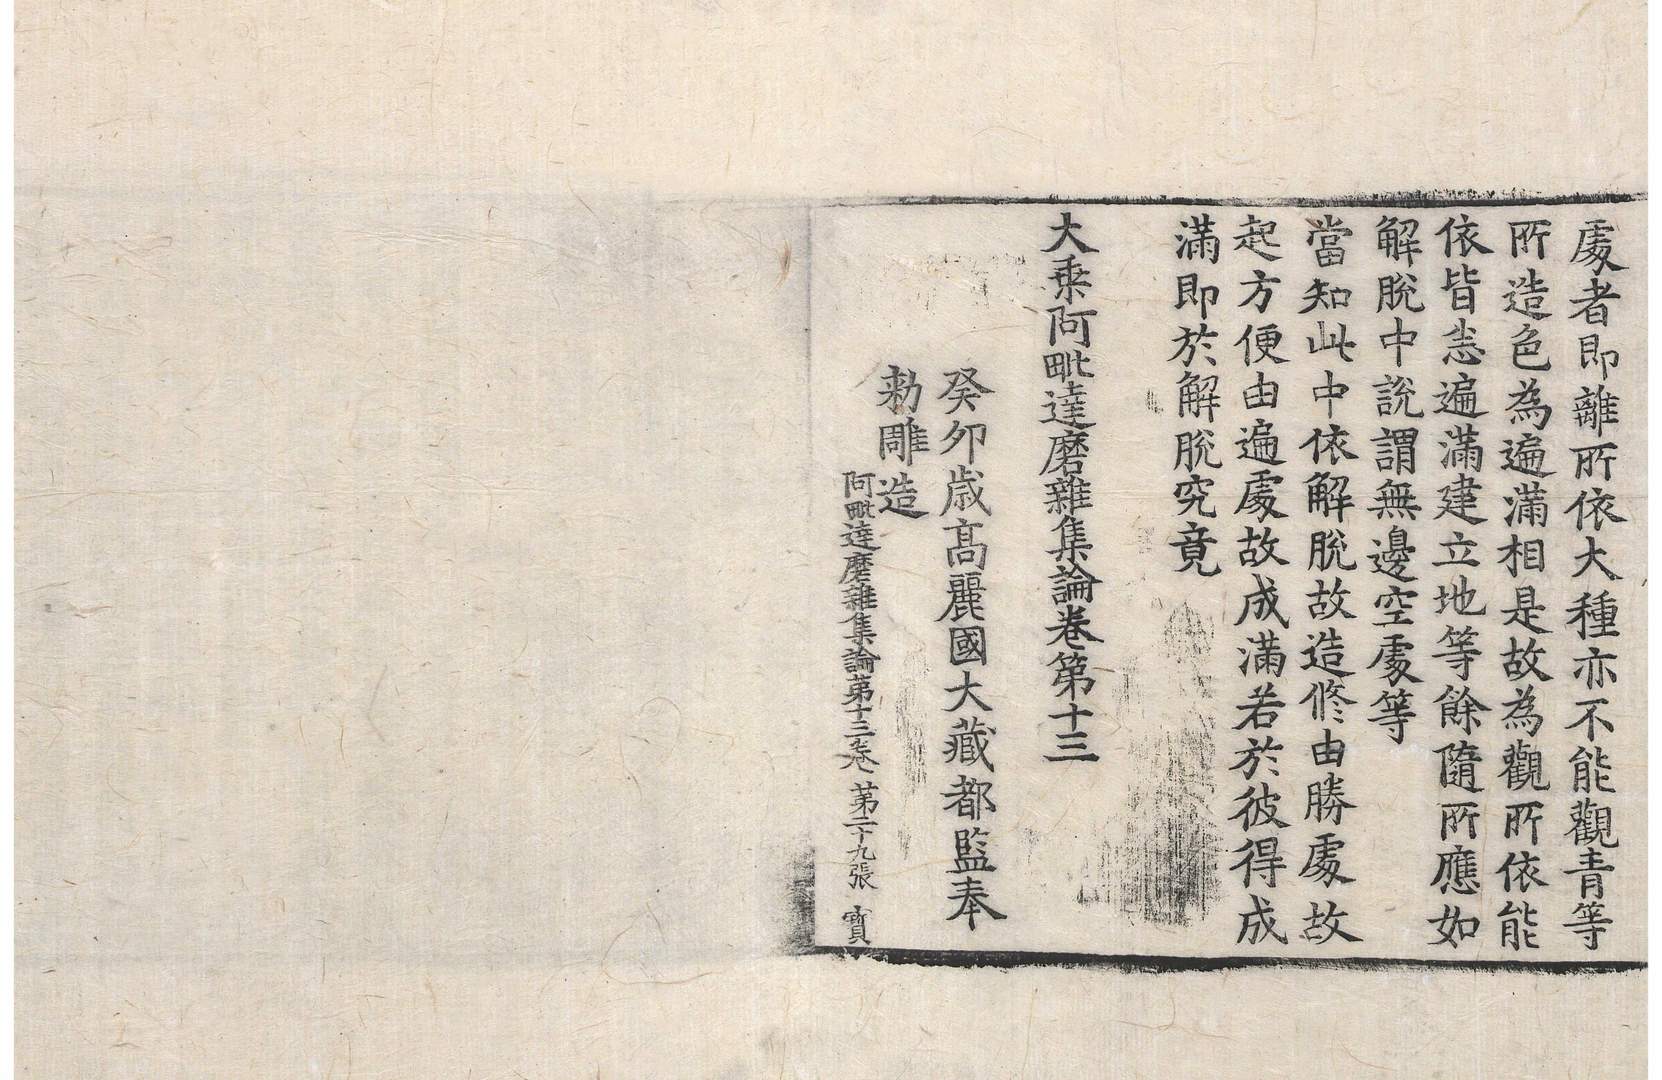 處者即離所依大種亦不能觀青等
所造色為遍滿相是故為觀所依能
依皆悉遍滿建立地等餘隨所應如
解脫中說謂無邊空處等
當知此中依解脫故造修由勝處故
起方便由遍處故成滿若於彼得成
滿即於解脫究竟
大乘阿毗達磨雜集論卷第十三
癸卯歲高麗國大藏都監奉
勅雕造
阿毗達磨雜集論第十三卷 第二十九張 寶